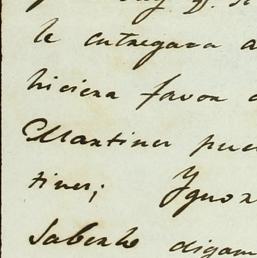 le entregara a
hiciera favor
Martinez pue
tines; Ygno
Saberlo digam